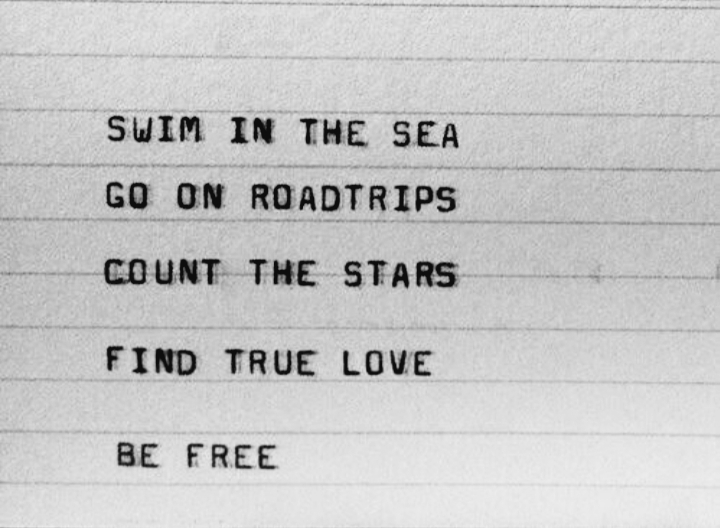 SWIM IN THE SEA
GO ON ROADTRIPS
COUNT THE STARS
FIND TRUE LOVE
BE FREE